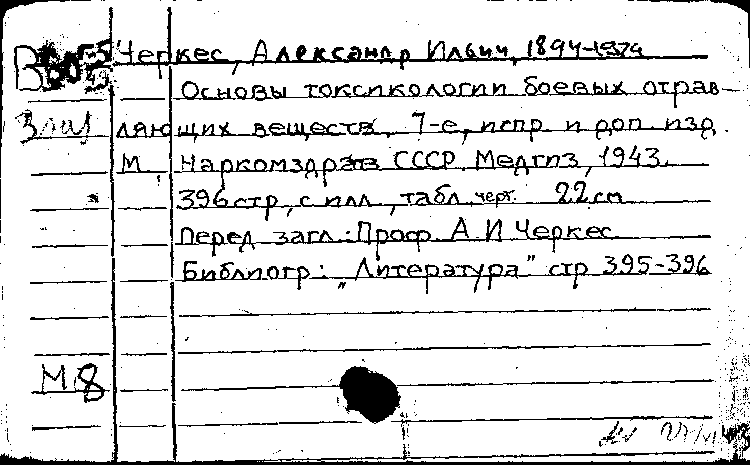 Черкес, Александр Ильич, 1894-1974
Основы токсикологии боевых отрав-
ляющих веществ. 7-е, испр. и доп. изд.
М., Наркомздрав СССР. Медгиз, 1943.
396 стр., с илл., табл. черт. 22 см
Перед загл.: Проф. А. И. Черкес
Библиогр: „Литература" стр 395-396
М 8